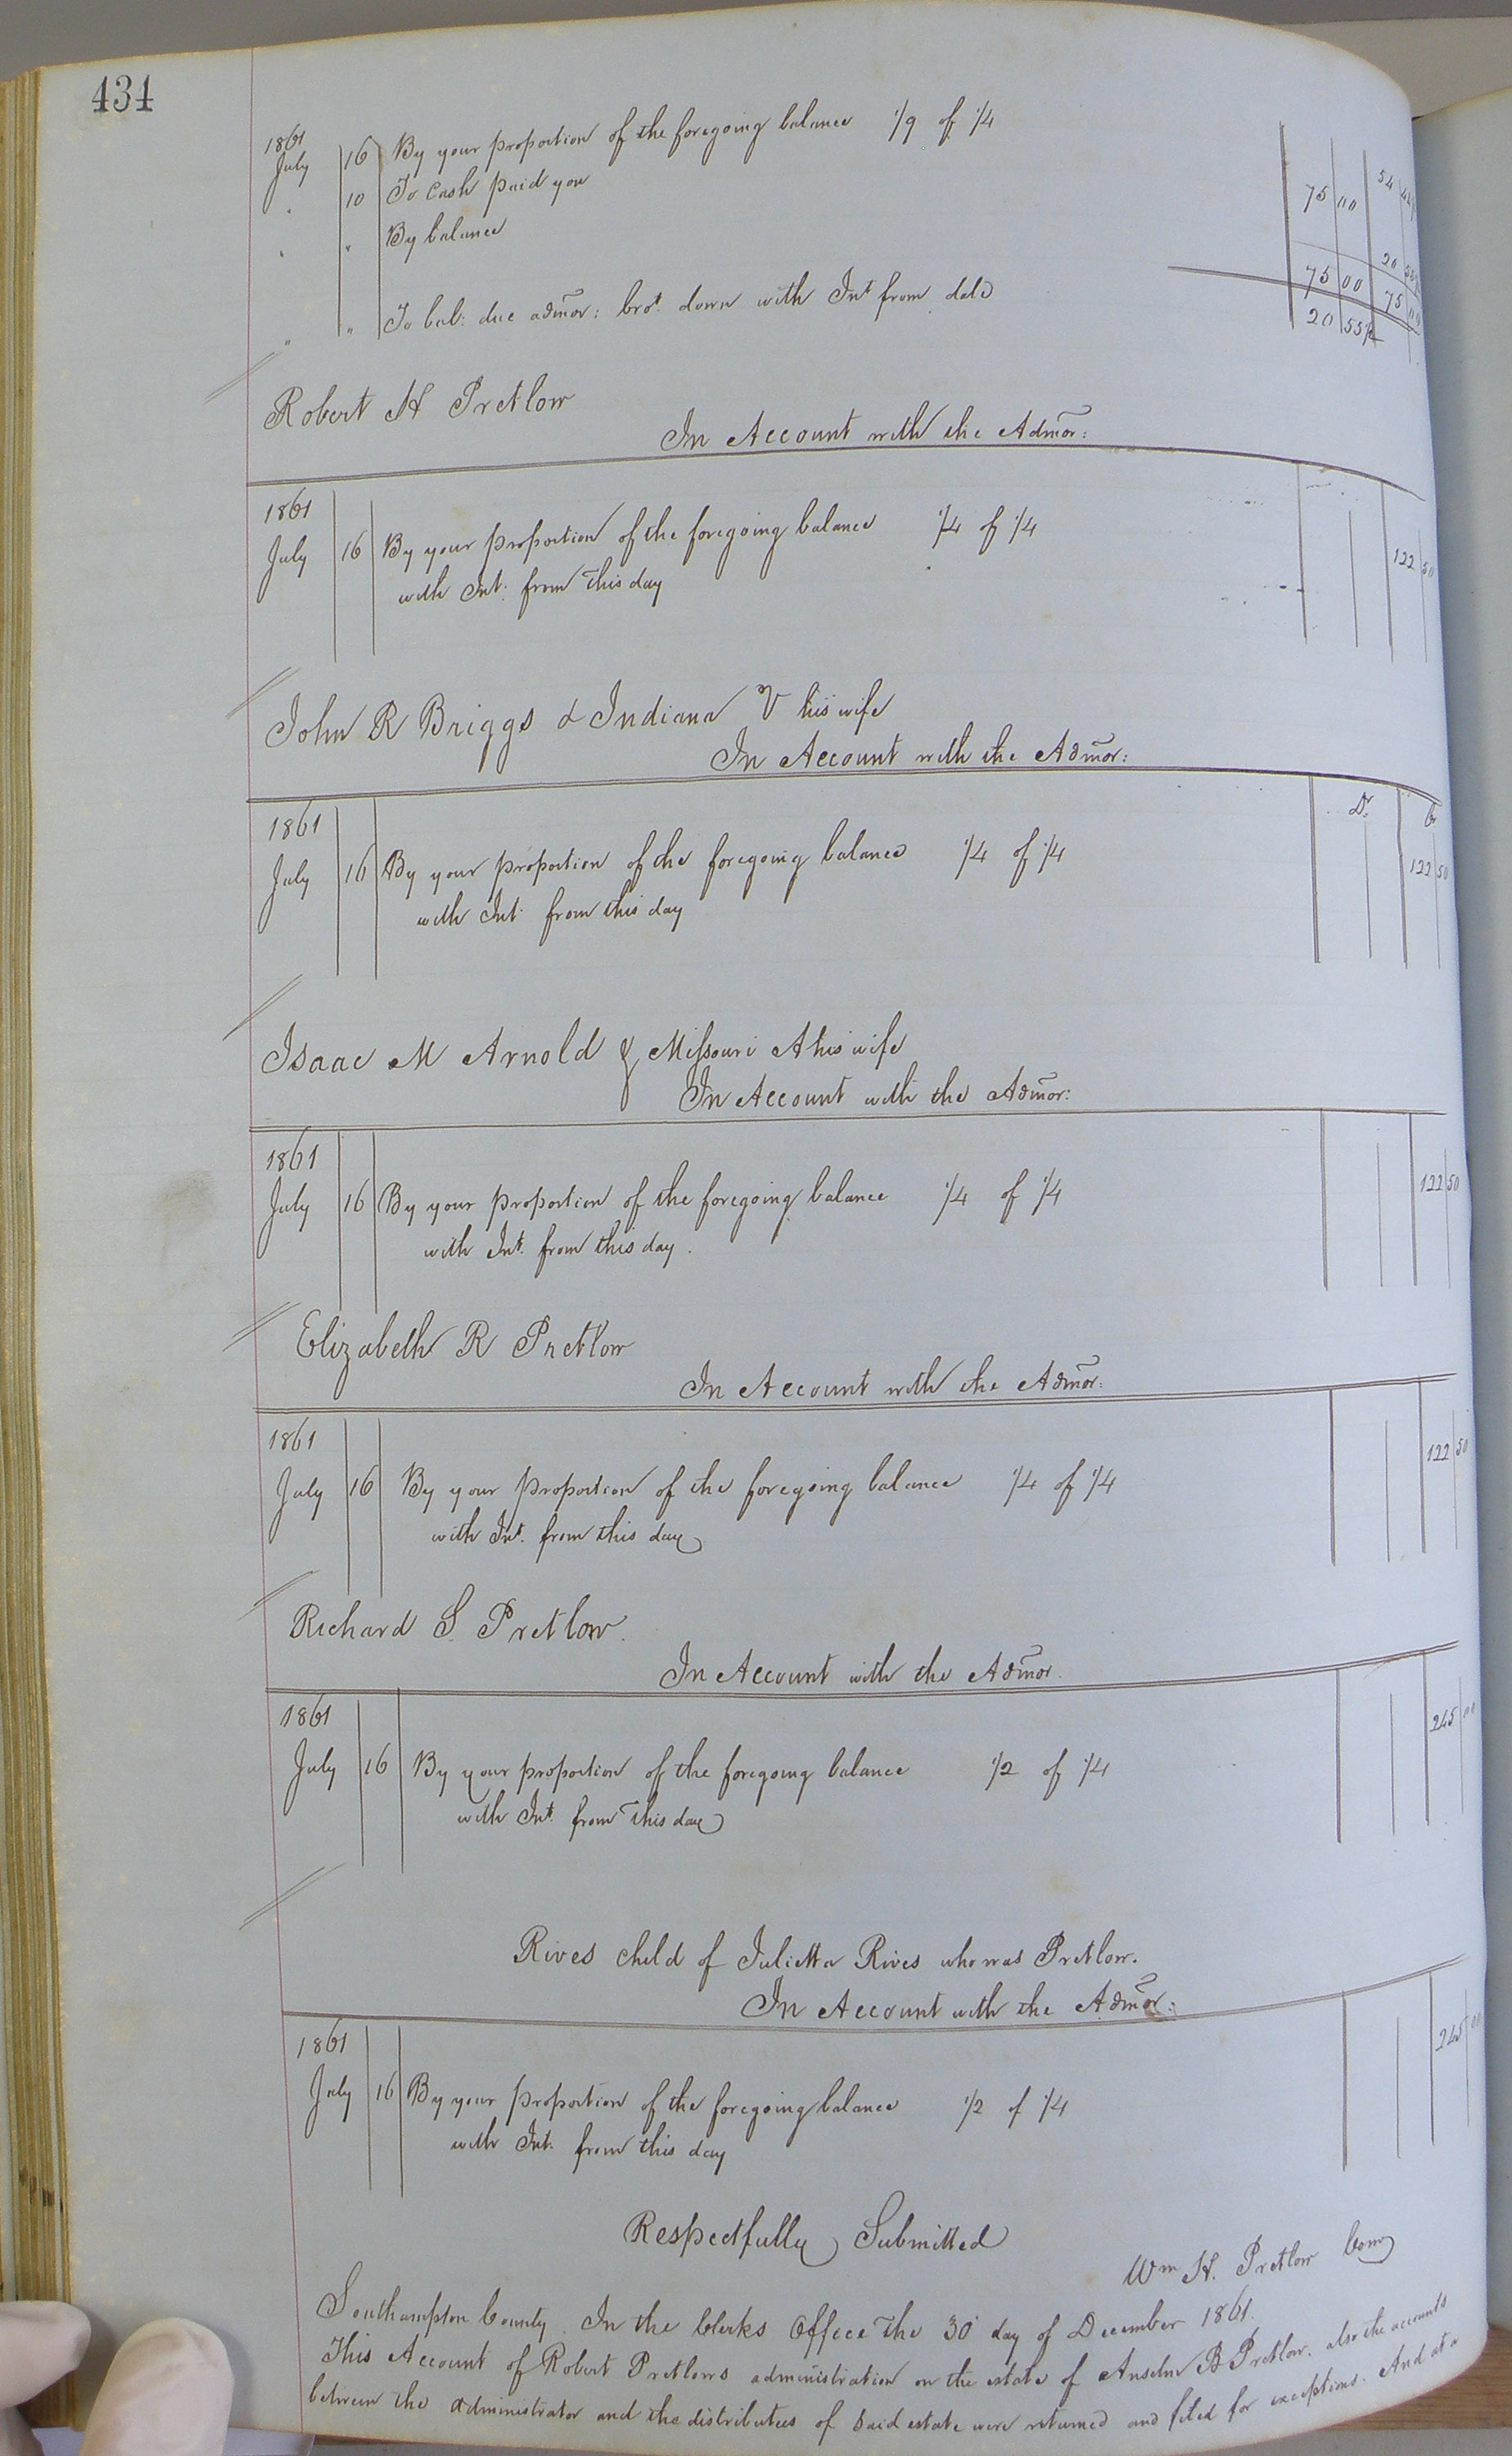 434
1861
July 16 By your proportion of the foregoing balance 1/9 of 1/4 54 44
" 10 To Cash paid you 75 00
" " By balance 20
75 00 75 00
" " To bal: due admor: brot. down with Int from date 20 55
Robert H Pretlow
In Account with the Admor:
1861
July 16 By your proportion of the foregoing balance 1/4 of 1/4 122 50
with Int. from this day
John R Briggs & Indiana V his wife
In Account with the Admor:
1861 Dr. Cr
July 16 By your proportion of the foregoing balance 1/4 of 1/4 122 50
with Int. from this day
Isaac M Arnold & Missouri A his wife
In Account with the Admor:
1861
July 16 By your proportion of the foregoing balance 1/4 of 1/4 122 50
with Int. from this day.
Elizabeth R Pretlow
In Account with the Admor.
1861
July 16 By your proportion of the foregoing balance 1/4 of 1/4 122 50
with Int. from this day
Richard S. Pretlow.
In Account with the Admor.
1861
July 16 By your proportion of the foregoing balance 1/2 of 1/4 245 00
with Int. from this day
Rives child of Julietta Rives who was Pretlow.
In Account with the Admor:
1861
July 16 By your proportion of the foregoing balance 1/2 of 1/4 245 00
with Int. from this day
Respectfully Submitted
Wm H. Pretlow Comr
Southampton County. In the Clerks Office the 30 day of December 1861.
This Account of Robert Pretlows administration on the estate of Anselm B Pretlow. also the accounts
between the administrator and the distributees of said estate were returned and filed for exceptions. And at a